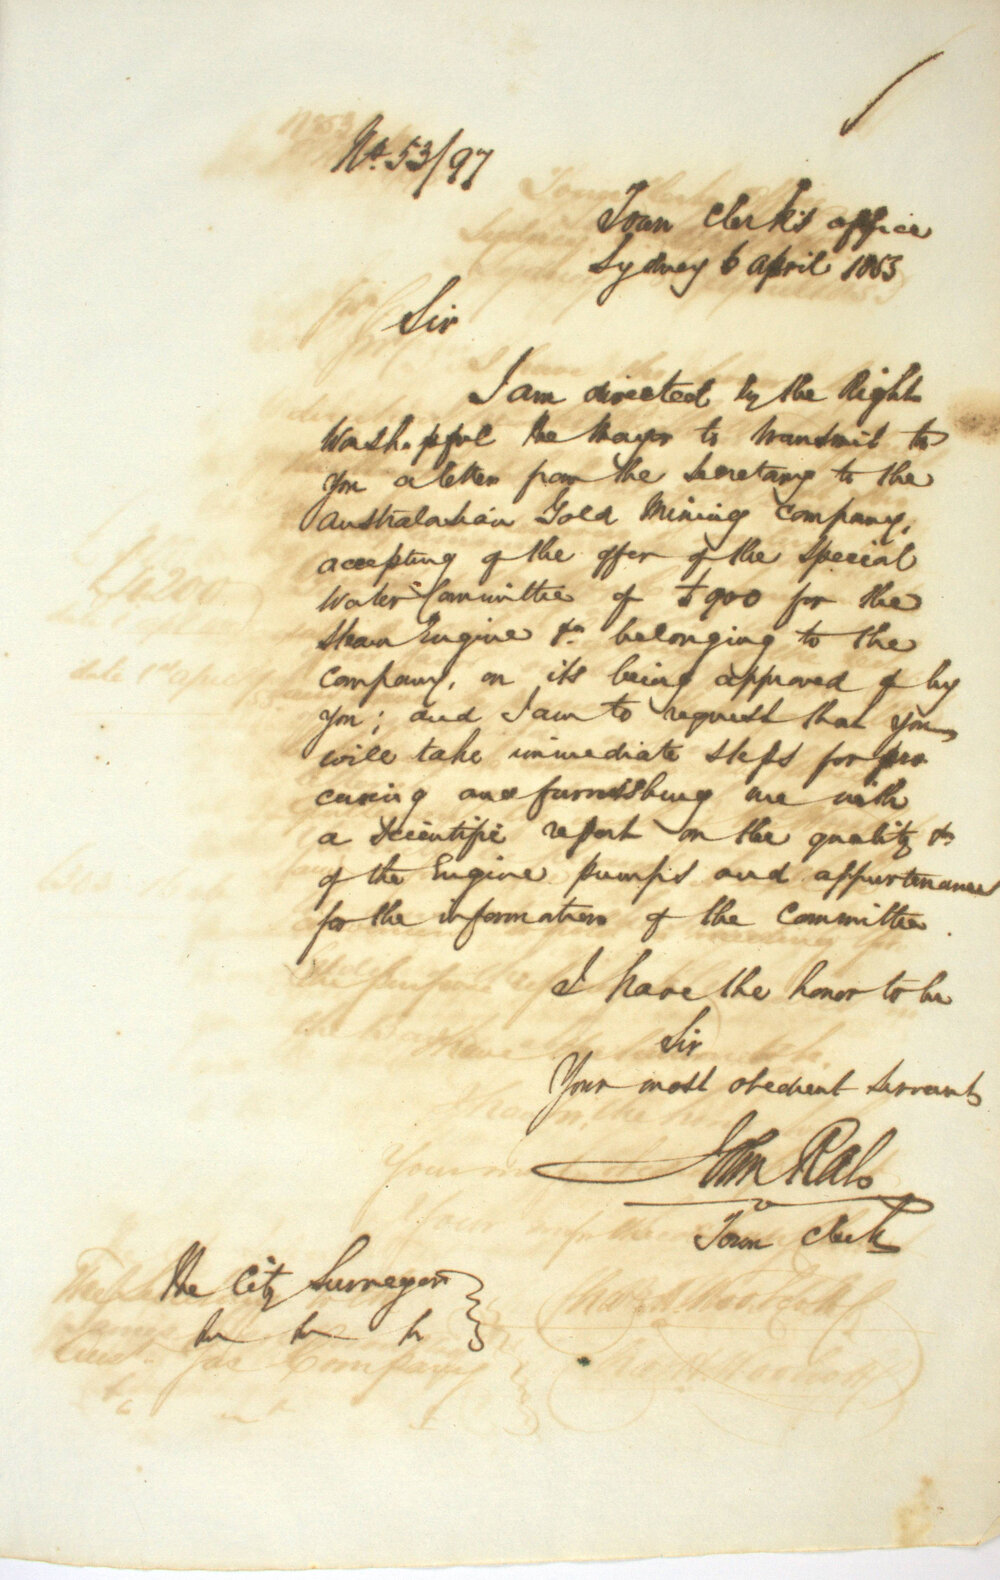 No. 53/97
Town Clerk's office
Sydney 6 April 1853
Sir
I am directed by the Right
Worshipful the Mayor to transmit to
you a letter from the Secretary to the
Australasian Gold Mining Company,
accepting of the offer of the Special
Water Committee of £900 for the
Steam Engine &c. belonging to the
Company, on its being approved of by
you; and I am to request that you
will take immediate steps for pro
curing and furnishing me with
a Scientific report on the quality &c
of the Engine pumps and appurtenances
for the information of the Committee.
I have the honor to be
Sir
Your most obedient servant
John Rae
Town Clerk
The City Surveyor